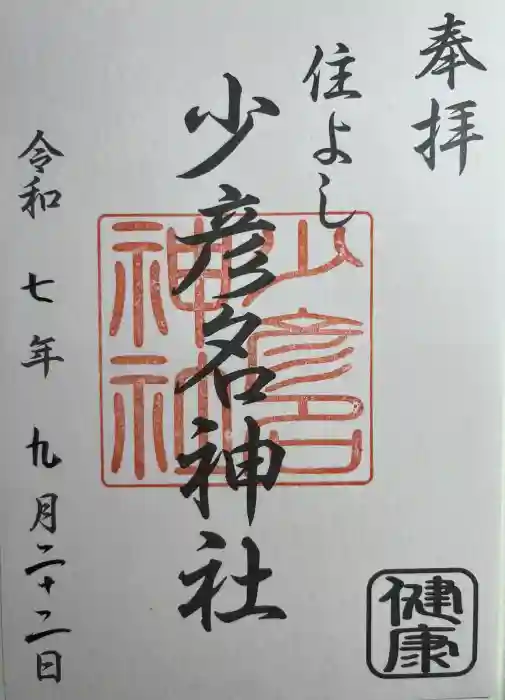 奉拝
住よし
少彦名神社
少彦名
神社
令和 七年 九月二十二日
健康